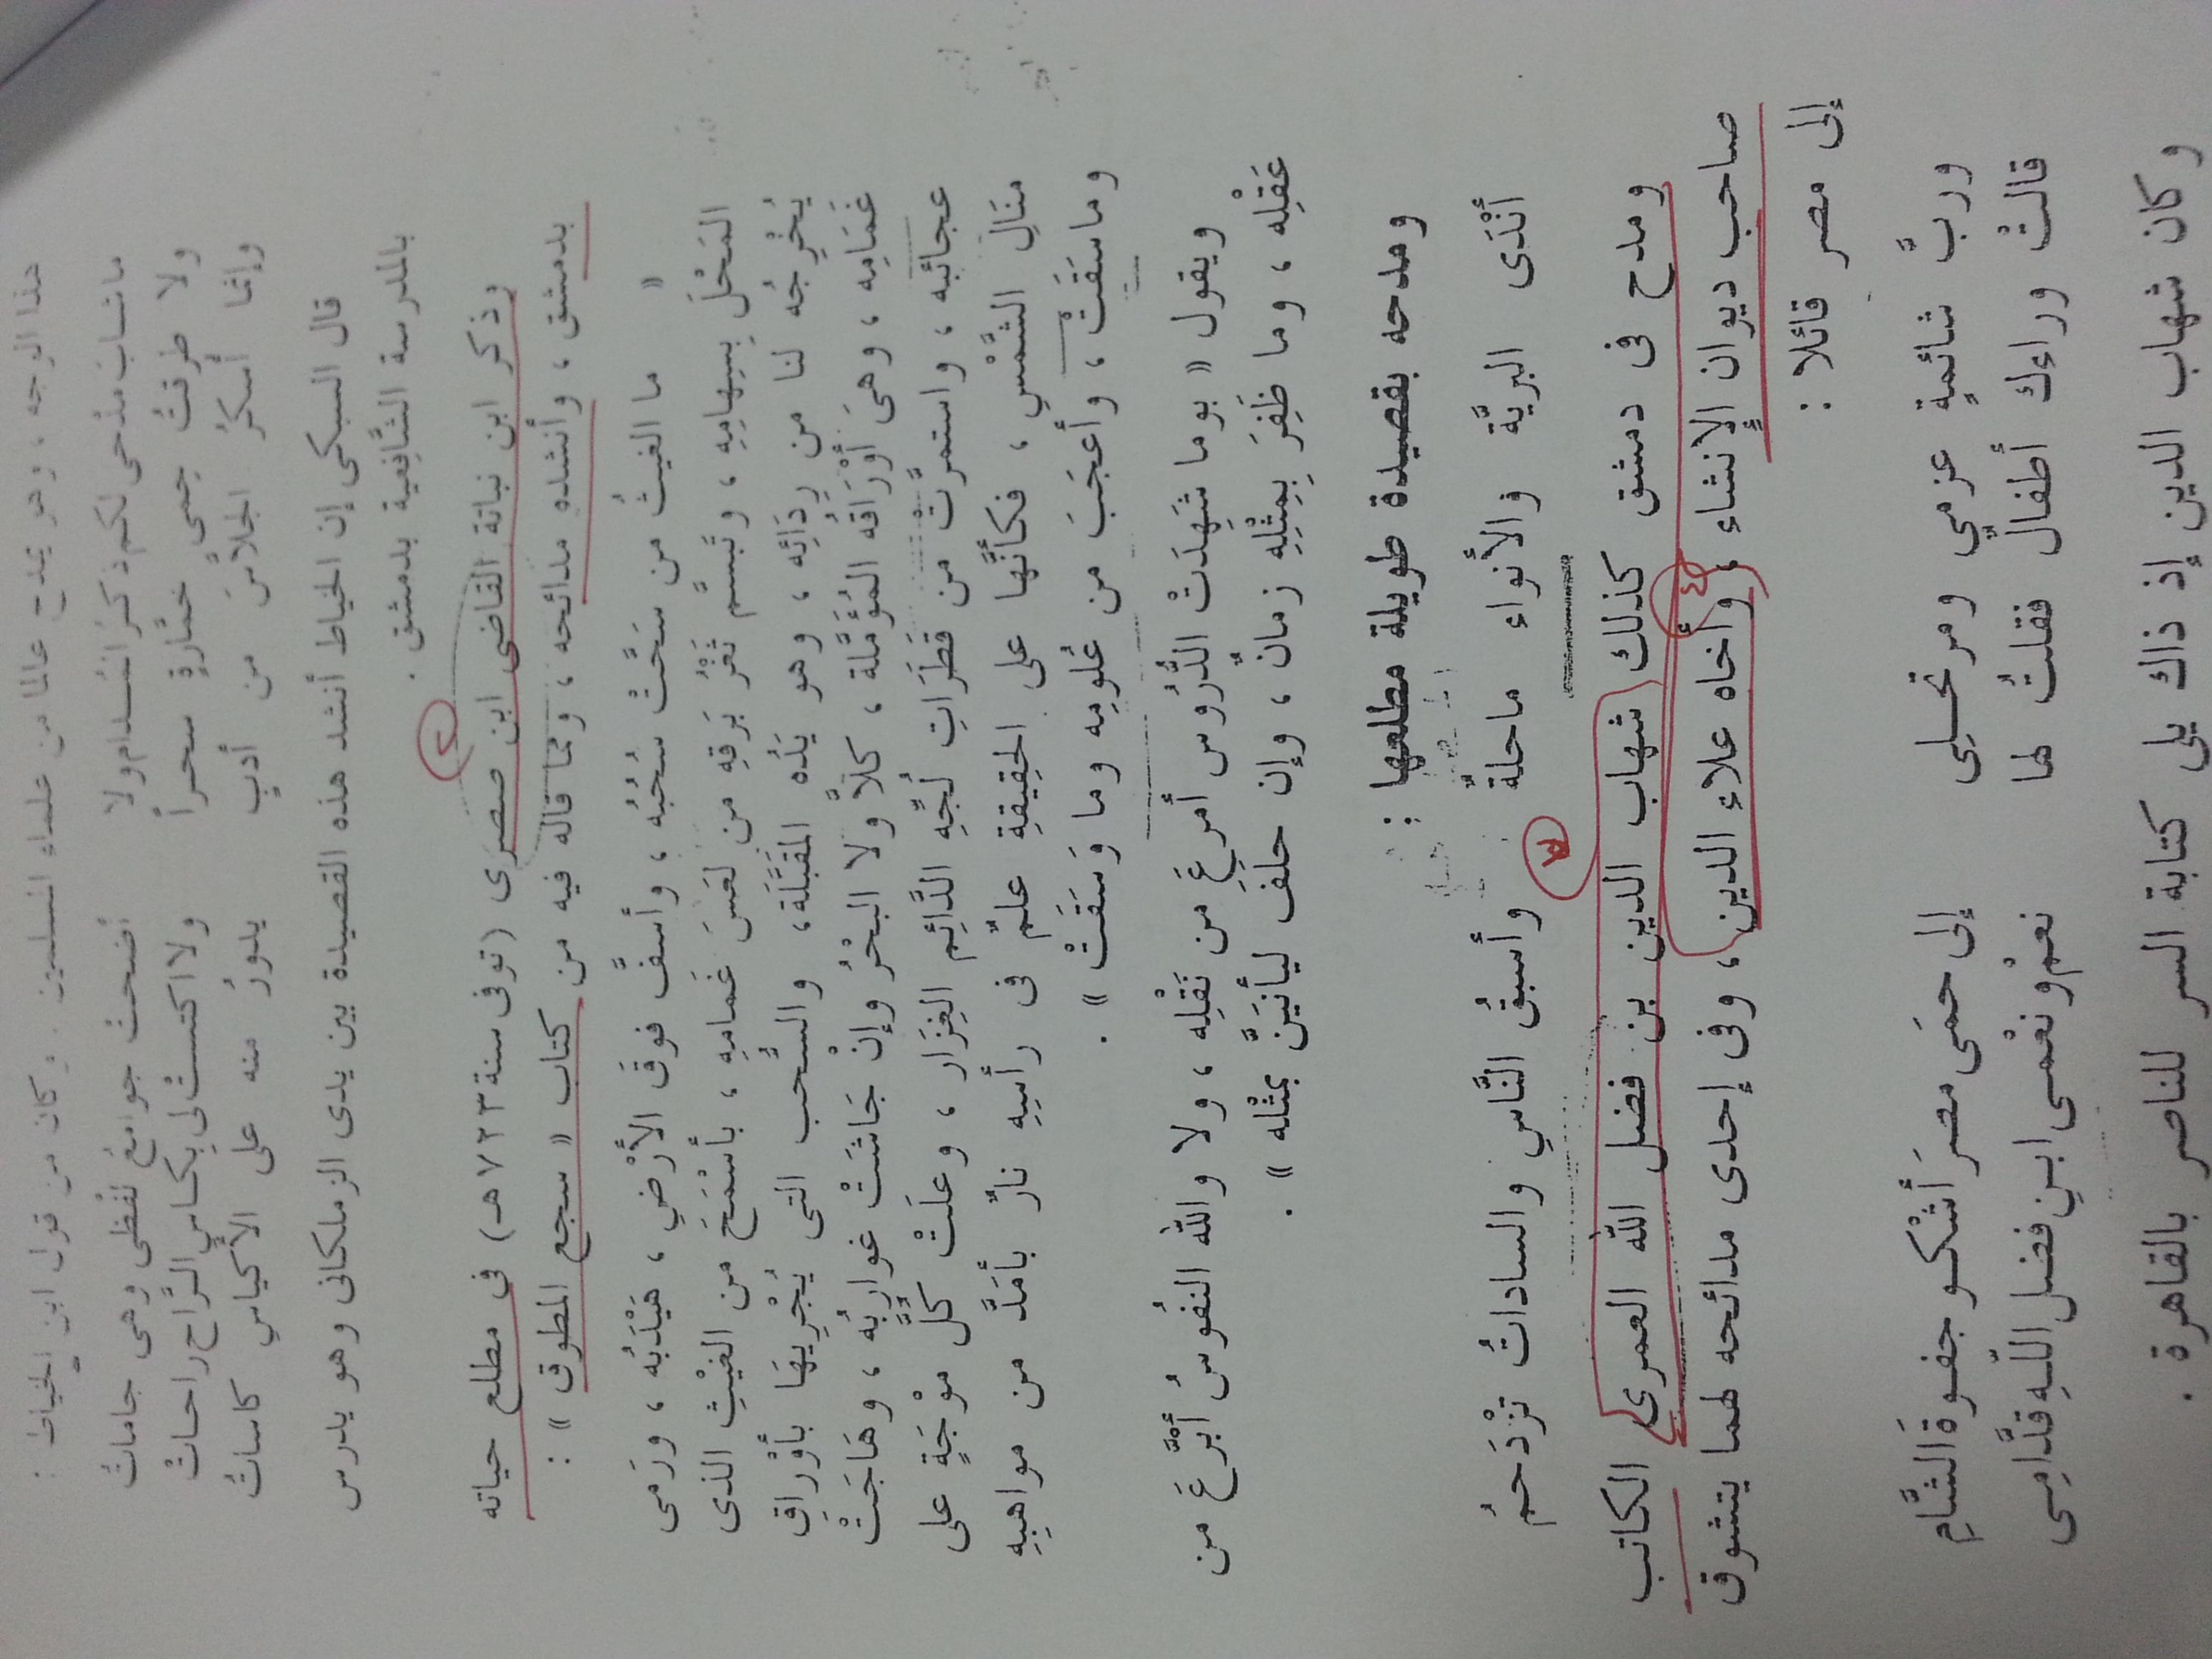 هذا الوجه ، وهو يمدح عالما من علماء المسلمين . وكان من قول ابن الخياط :
ما شاب مدحى لكم ذكر المدام ولا أضحت جوامع لفظى وهى جامات
ولا طرقتُ حمى خمَّارةٍ سحراً ولا اكتست لى بكاسِ الرَّاح راحاتُ
وإنما أُسكرُ الجلاَّسَ من أدبٍ يدورُ منه على الأكياسِ كاساتُ
قال السبكى إن الخياط أنشد هذه القصيدة بين يدى الزملكانى وهو يدرس
بالمدرسة الشَّافعية بدمشق .
٢
وذكر ابن نباتة القاضى ابن صصرى (توفى سنة ٧٢٣هـ) فى مطلع حياته
بدمشق ، وأنشده مدائحه ، ومما قاله فيه من كتاب « سجع المطوق » :
« ما الغيثُ من سَحَّتْ سُحُبُه ، وأسفَّ فوقَ الأَرْضِ ، هَيْدَبُه ، ورَمى
المَحْلَ بِسِهامِهِ ، وتَبسَّم ثَغْرُ بَرقِهِ من لعَسَ غَمامِهِ ، بأسْمَحَ من الغيْثِ الذى
يُخْرِجُه لنا من رِدَائِه ، وهو يَدُه المقَبَّلَة، والسُّحب التى يُجْرِيهَا بأوْراقِ
غَمَامِه ، وهىَ أوْرَاقُه المُؤَمَّلة ، كلاَّ ولا البحْرُ وإنْ جَاشَتْ غواربُه ، وهَاجَتْ
عجائبه ، واستمرَّت من قطَرَاتِ لُجِّهِ الدَّائِم الغِزَار ، وعلَتْ كلُّ موْجَةٍ على
منَالِ الشَّمْسِ ، فكأنَّها على الحقِيقةِ علمٌ فى رأسِهِ نارٌ بأمَدَّ من مواهبِهِ
وماسَقَتْ ، وأعجَبَ من عُلومِه وما وَسَقَتْ » .
ويقول « بوما شَهِدَتْ الدُّرُوس أمرعَ من نَقْلِه ، ولا والله النفُوسُ أبْرَعَ من
عَقِلْه ، وما ظَفِرَ بِمِثْلِهِ زمانٌ ، وإن حلف ليأنيَنَّ بمثْله » .
ومدحه بقصيدة طويلة مطلعها :
أنْدَى البريَّة والأنواء ماحلةٌ وأسبقُ النَّاسِ والساداتُ تزْدَحمُ
٣
ومدح فى دمشق كذلك شهاب الدين بن فضل الله العمري الكاتب
صاحب ديوان الإنشاء ، وأخاه علاء الدين ، وفى إحدى مدائحه لهما يتشوق
٤
إلى مصر قائلا :
وربَّ شائمةٍ عزمي ومرتحلِى إلى حمَى مصرَ أشْكو جفوةَ الشَّامِ
قالتْ وراءك أطفالٌ فقلتُ لها نعمْ ونعْمى ابنِ فضل اللّهِ قدَّامِى
وكان شهاب الدين إذ ذاك يلى كتابة السر للناصر بالقاهرة .